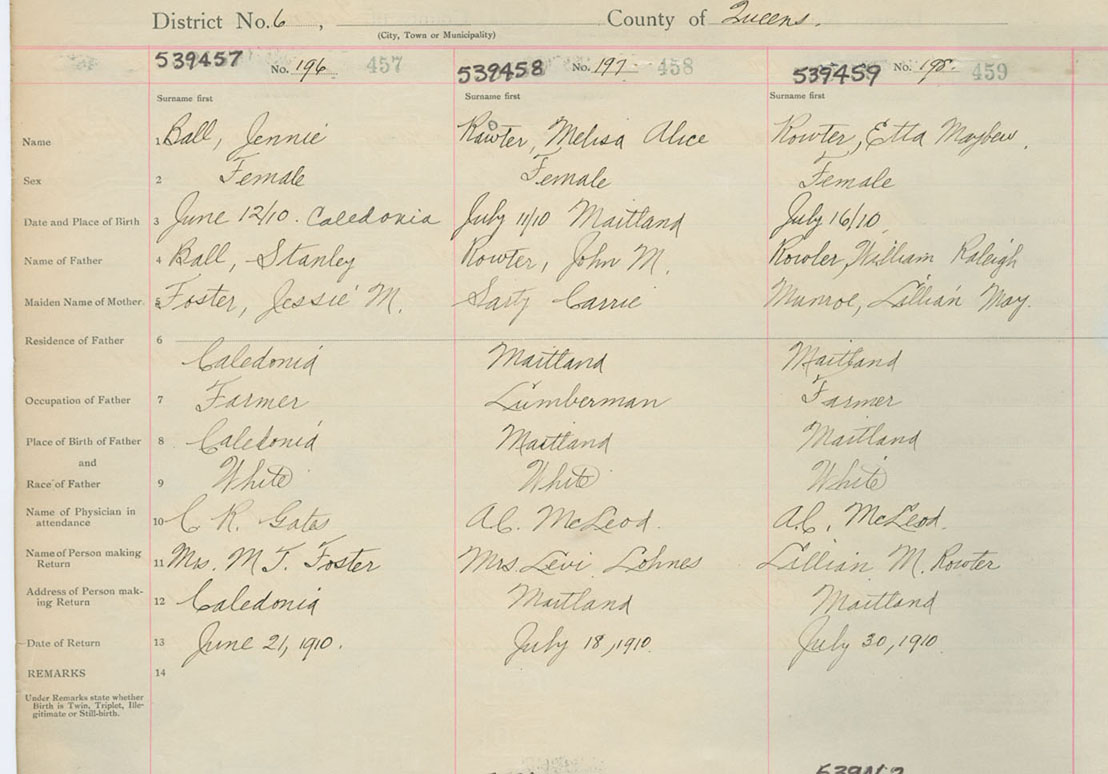 District No. 6, County of Queens.
(City, Town or Municipality)
539457 No. 196 457 539458 No. 197 458 539459 No. 198 459
Surname first Surname first Surname first
Name 1 Ball, Jennie Rowter, Melisa Alice Rowter, Etta Maybew.
Sex 2 Female Female Female
Date and Place of Birth 3 June 12/10. Caledonia July 11/10 Maitland July 16/10
Name of Father 4 Ball, Stanley Rowter, John M. Rowter, William Raleigh
Maiden Name of Mother. 5 Foster, Jessie M. Carrie Munroe, Lillian May.
Residence of Father 6 Caledonia Maitland Maitland
Occupation of Father 7 Farmer Lumberman Farmer
Place of Birth of Father 8 Caledonia Maitland Maitland
and
Race of Father 9 White White White
Name of Physician in
attendance 10 C R. Gates A.C. McLeod. A.C. McLeod.
Name of Person making
Return 11 Mrs. M. T. Foster Mrs Levi Lohnes Lillian M. Rowter
Address of Person mak-
ing Return 12 Caledonia Maitland Maitland
Date of Return 13 June 21, 1910. July 18, 1910. July 30, 1910.
REMARKS 14
Under Remarks state whether
Birth is Twin, Triplet, Ille-
gitimate or Still-birth.